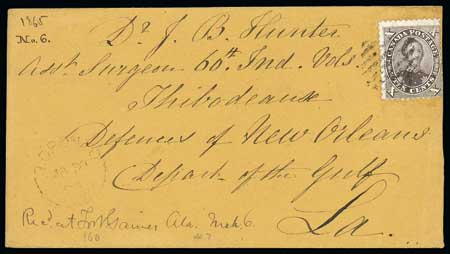 1865
No. 6.
Dr J. B. Hunter
Asst Surgeon 60th Ind. Vols.
Thibodeaux
Defences of New Orleans
Depart. of the Gulf
La.
Recd. at Fort Gaines Ala. Mch 6.
CANADA POSTAGE
TEN CENTS
X
X